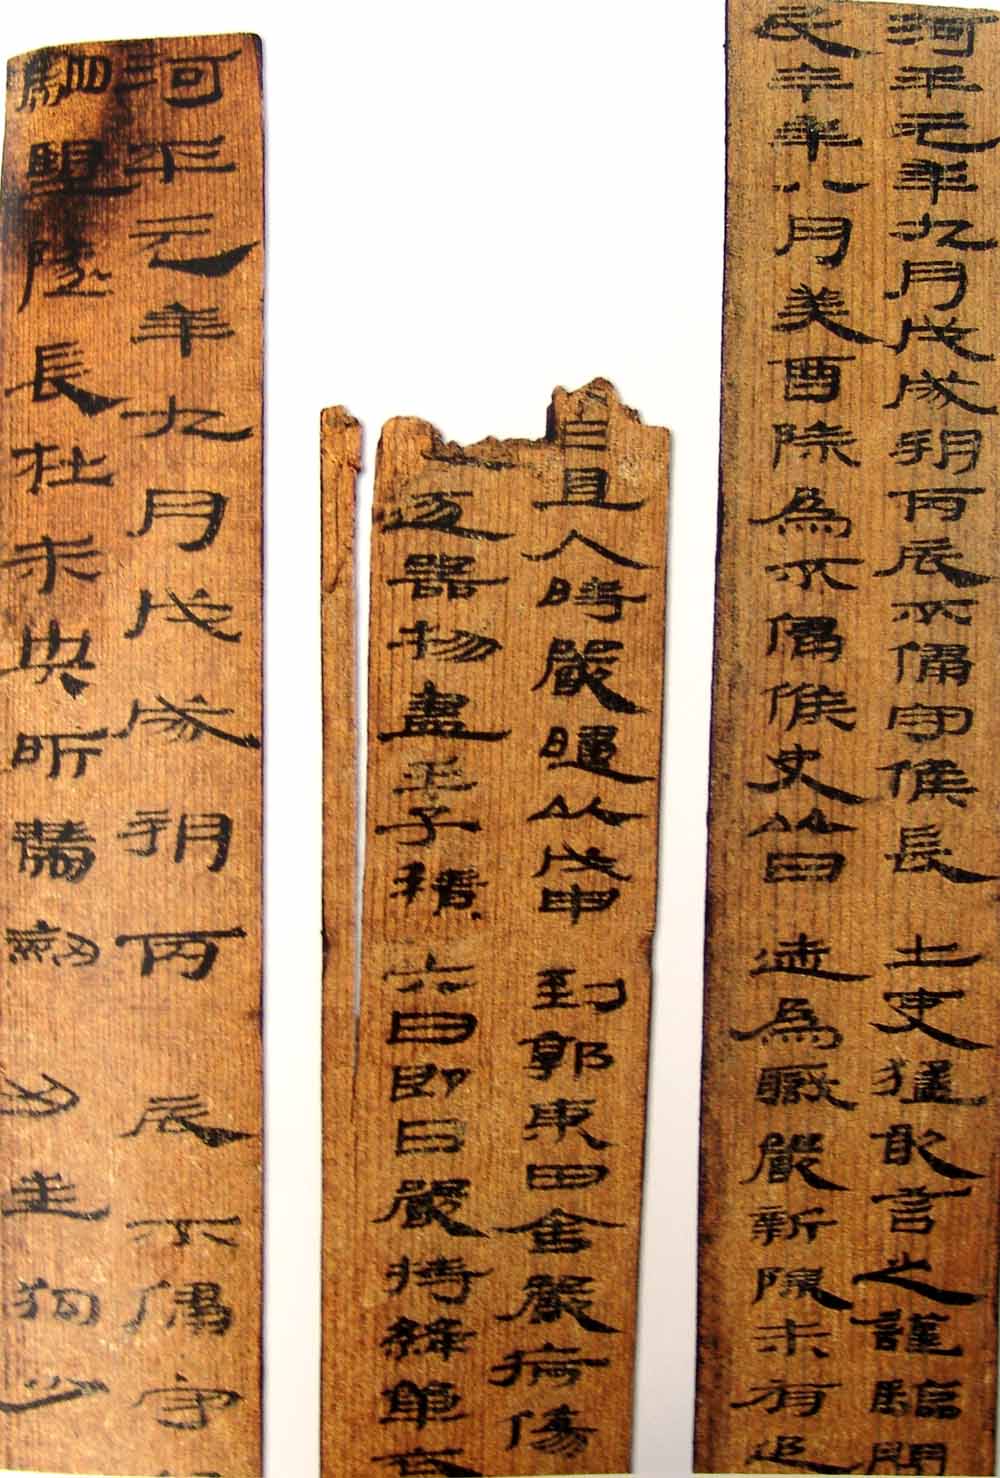 河平元年九月戊戌朔丙辰不侵守候長士吏猛敢言之謹驗問
民今年八月癸酉除為不侵候史以日迹為職嚴新除未有追
日且入時嚴歸以戊申到郭東田舍嚴病傷
逐器物盡壬子積六日即日嚴持絳單衣
河平元年九月戊戌朔丙辰不侵守
駟望隧長杜未央所帶劍刃生狗少